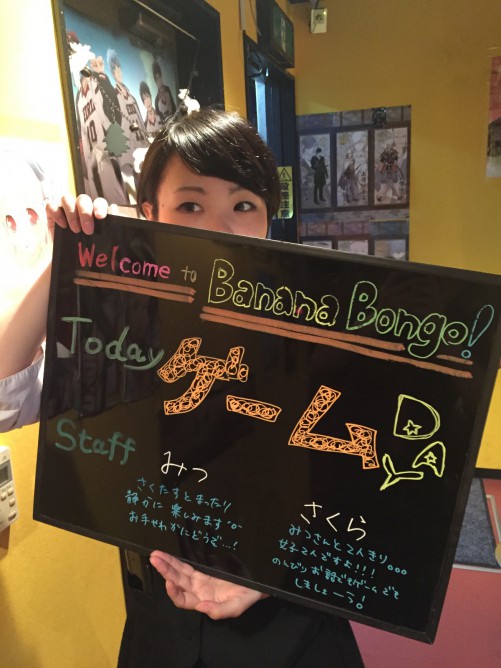 Welcome to Banana Bongo!
Today
ゲーム
DAY
Staff
みつ
さくたすとまったり
静かに楽しみます^o^
お手やわかにどうぞ...!
さくら
みつさんと2人きり。。。
女子2人ですよ!!!
のんびりお話でもゲームでも
しましょーう!